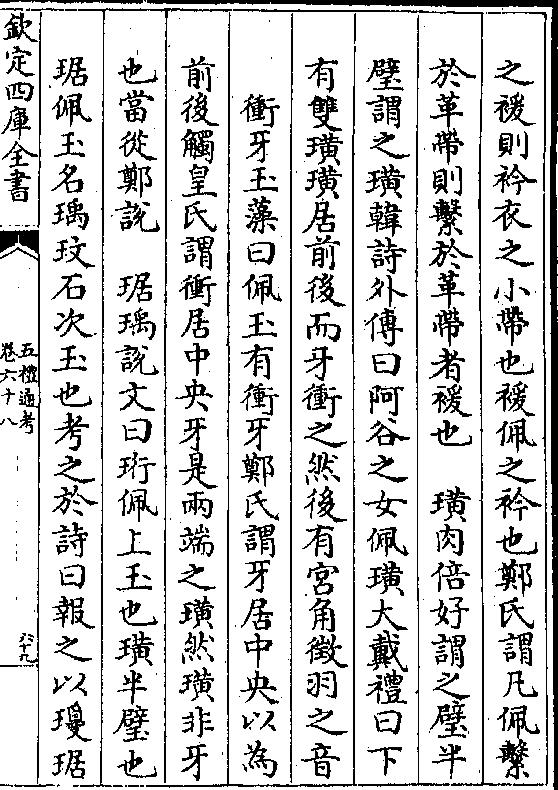 之禐則衿衣之小帶也禐佩之衿也鄭氏謂凡佩繫
於革帶則繫於革帶者禐也　璜肉倍好謂之璧半
璧謂之璜韓詩外傳曰阿谷之女佩璜大戴禮曰下
有雙璜璜居前後而牙衝之然後有宮角徵羽之音
衝牙玉藻曰佩玉有衝牙鄭氏謂牙居中央以為
前後觸皇氏謂衝居中央牙是兩端之璜然璜非牙
也當從鄭說　琚瑀說文曰珩佩上玉也璜半璧也
琚佩玉名瑀玟石次玉也考之於詩曰報之以瓊琚
欽定四庫全書
五禮通考
卷六十八
六十九